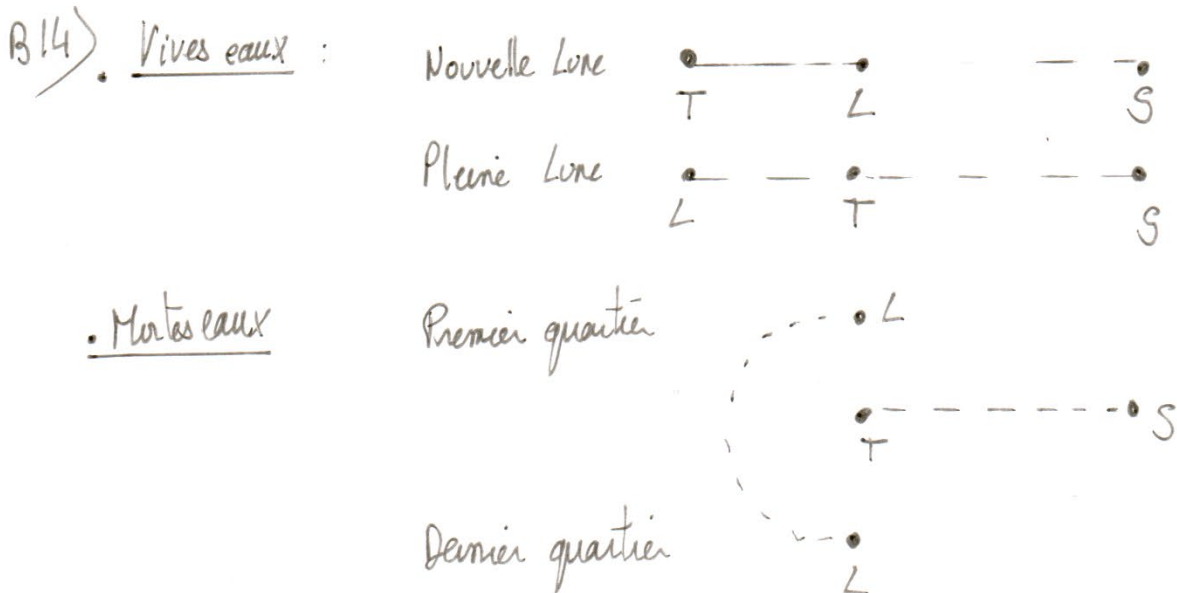 B14) . Vives eaux : Nouvelle Lune
T L S
Pleine Lune
L T S
. Mortes eaux Premier quartier L
T S
Dernier quartier
L